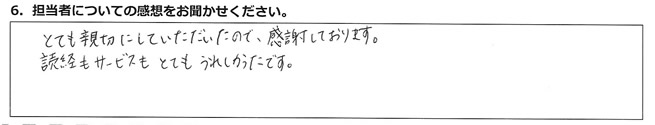 6．担当者についての感想をお聞かせください。
とても親切にしていただいたので、感謝しております。
読経もサービスも とても うれしかったです。